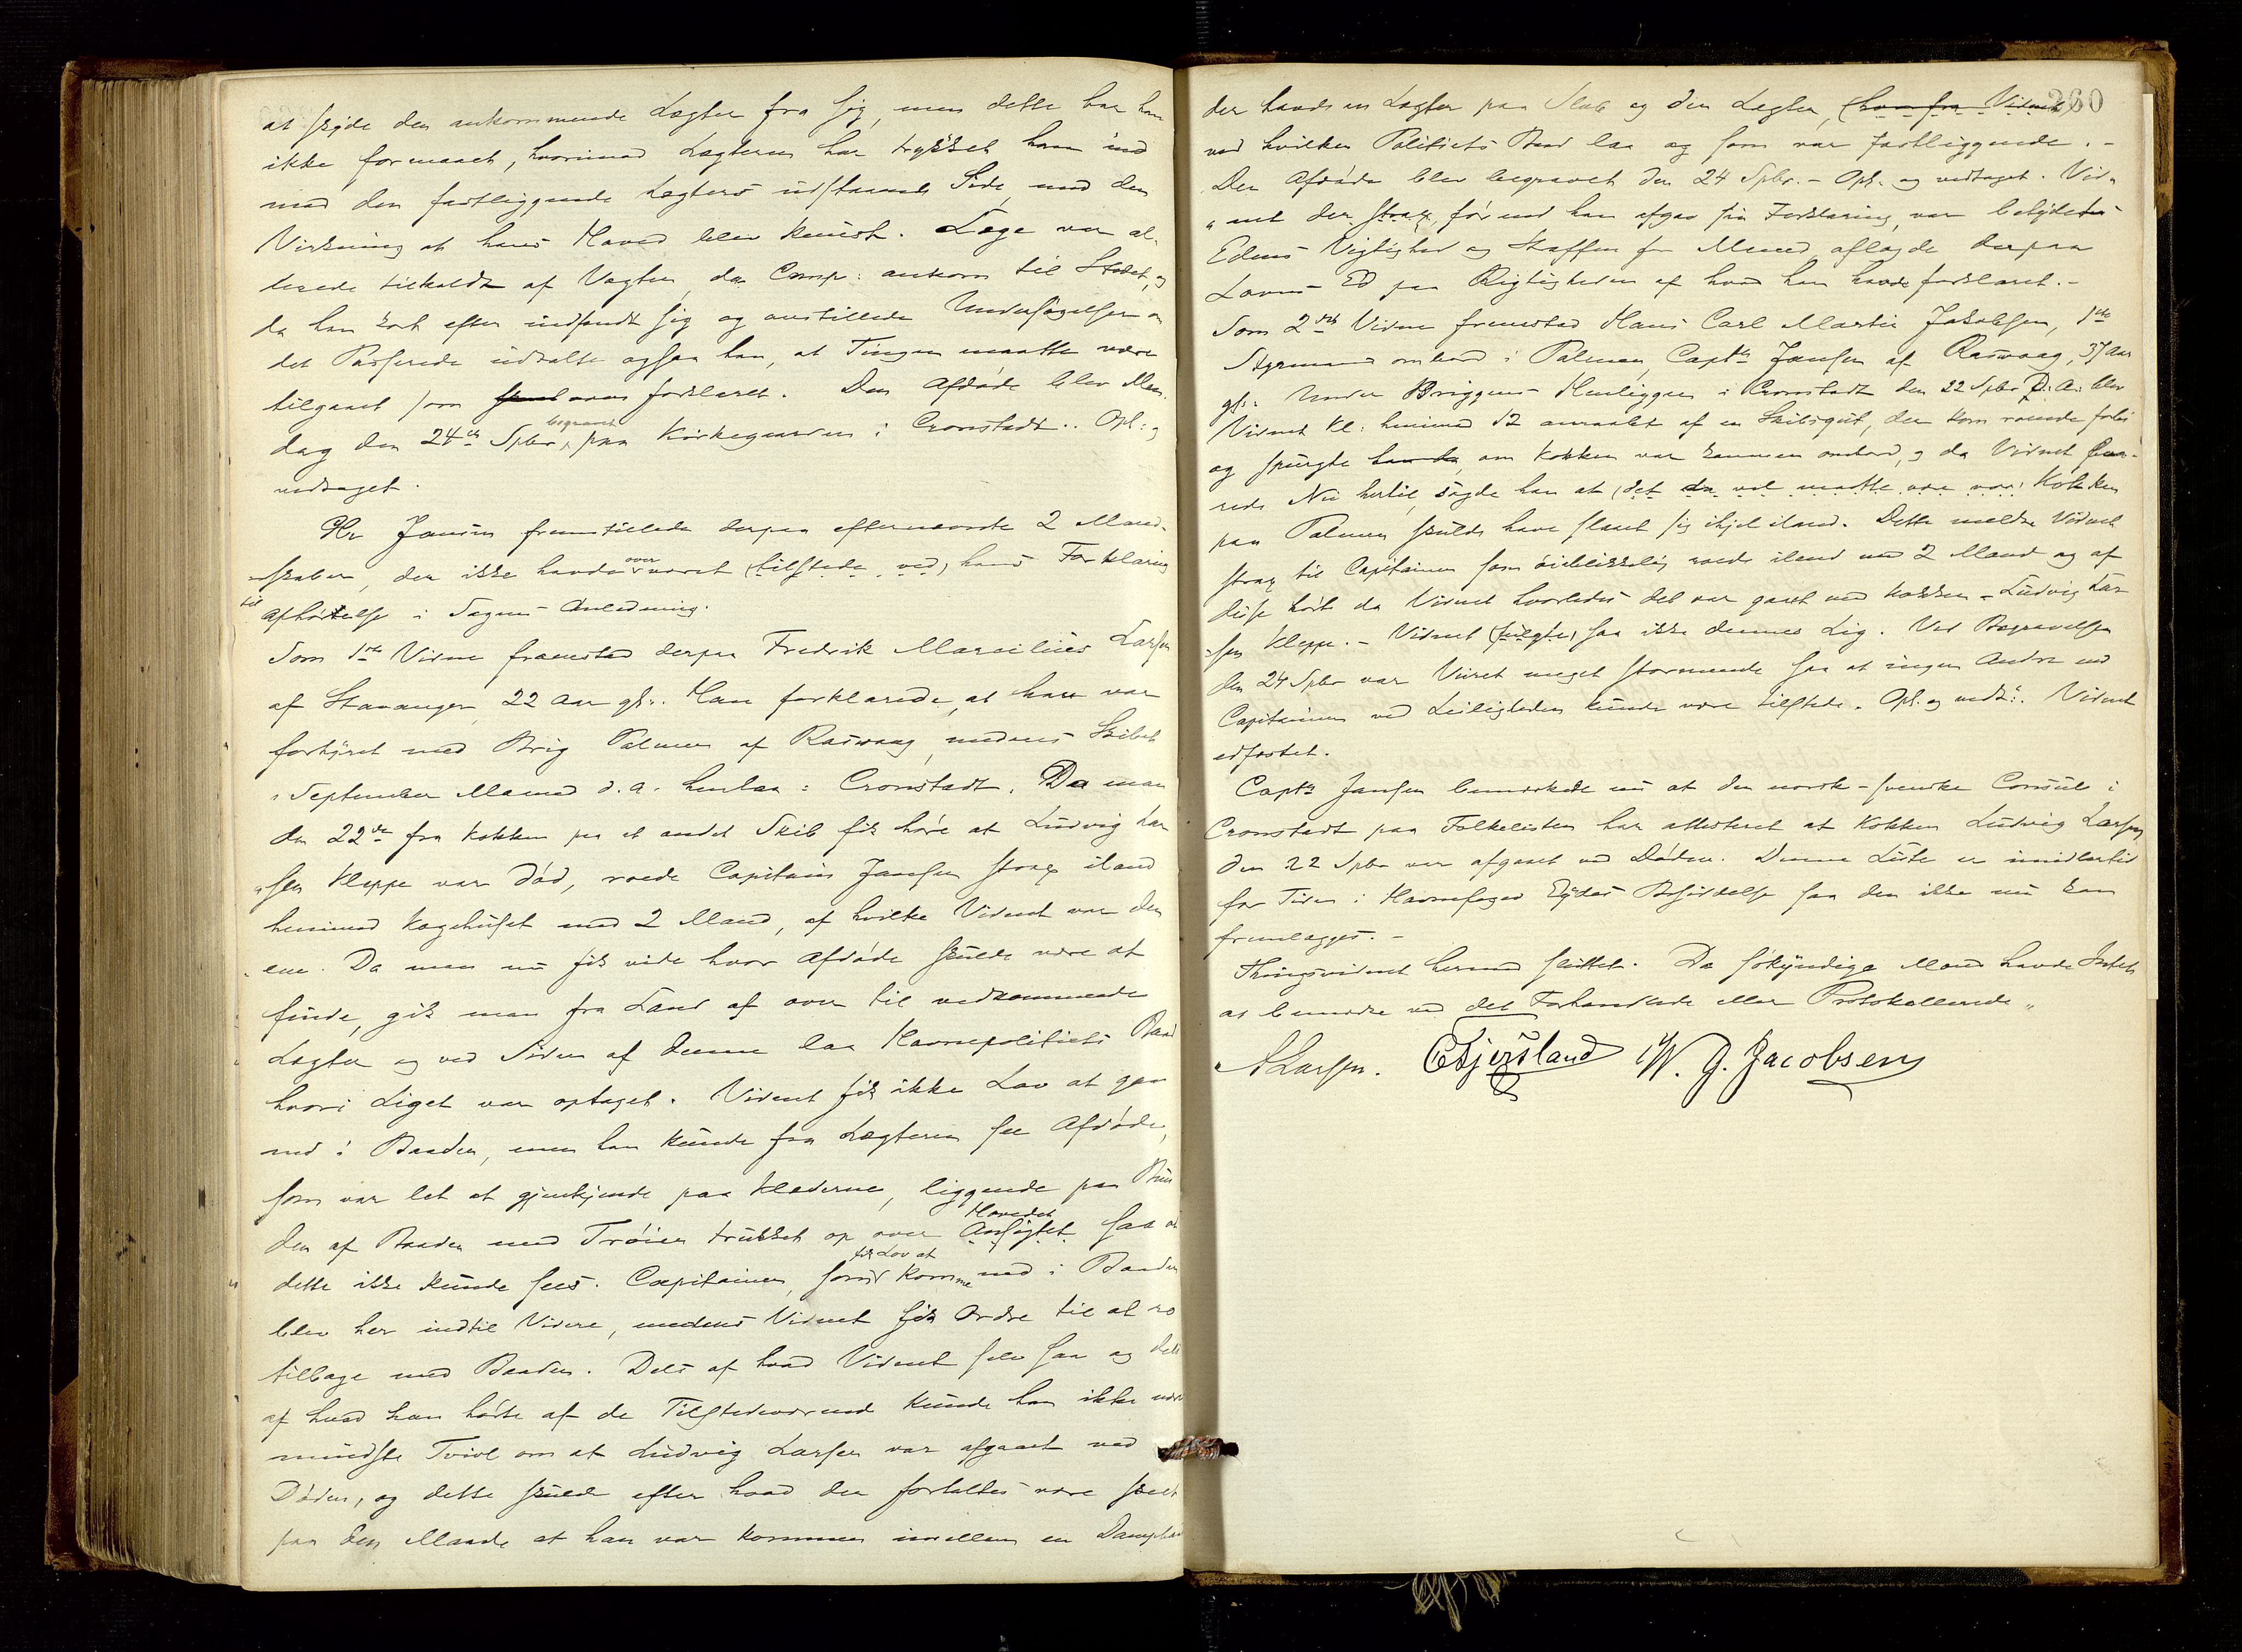 at skyde den ankommende Lægter fra sig, men dette har han
ikke formaaet, hvorimod Lægteren har trykket ham ind
mod den fastliggende Lægters udstaaende Side, med den
Virkning at hans Hoved blev knust. Læge var al-
lerede tilkaldt af Vagten, da Comp: ankom til Stedet, og
da han kort efter indfandt sig og anstillede Undersøgelser om
det Passerede udtalte ogsaa han, at Tingen maatte være
tilgaaet som forklaret. Den Afdøde blev Man-
dag den 24de Spbr begravet paa Kirkegaarden i Cronstadt. Opl: og
vedtaget.
Hr Jansen fremstillede derpaa efternævnte 2 Mand-
skaber, der ikke havde overværet (tilstede ved) hans Forklaring
til Afhørelse i Sagens Anledning.
Som 1ste Vidne fremstod derpaa Fredrik Marcelius Larsen
af Stavanger 22 Aar gl:. Han forklarede, at han var
forhyret med Brig Palmen af Rasvaag, medens Skibet
i September Maaned d. A. henlaa i Cronstadt. Da man
den 22de fra Kokken paa et andet Skib fik høre at Ludvig Lar
"sen Kleppe var død, roede Capitain Jansen strax iland
henimod Kogehuset med 2 Mand, af hvilke Vidnet var den
ene. Da man nu fik vide hvor Afdøde skulde være at
finde, gik man fra Land af over til vedkommende
Lægter og ved Siden af denne laa Havnepolitiets Baad
hvori Liget var optaget. Vidnet fik ikke Lov at gaa
ned i Baaden, men han kunde fra Lægteren see Afdøde,
som var let at gjenkjende paa Klæderne, liggende paa Bun
den af Baaden med Trøien trukket op over Hovedet Ansigtet saa at
dette ikke kunde sees. Capitainen, som fik Lov at komme ned i Baaden
blev her indtil Videre, medens Vidnet fik Ordre til at ro
tilbage med Baaden. Dels af hvad Vidnet selv saa og dels
af hvad han hørte af de Tilstedeværende kunde han ikke nære
mindste Tvivl om at Ludvig Larsen var afgaaet ved
Døden, og dette skulde efter hvad der fortaltes være skeet
paa den Maade at han var kommen imellem en Dampbaad
260
der havde en Lægter paa Slæb og den Lægter, (hvorfra Vidnet)
ved hvilken Politiets Baad laa og som var fastliggende. -
Den Afdøde blev begravet den 24 Spbr. - Opl. og vedtaget. Vid-
"net der strax, førend han afgav sin Forklaring, var betydet
Edens Vigtighed og Straffen for Meened aflagde derpaa
Lovens Ed paa Rigtigheden af hvad han havde forklaret. -
Som 2det Vidne fremstod Hans Carl Martin Jakobsen, 1ste
Styrmand ombord i Palmen, Captn Jansen af Rasvaag, 37 Aar
gl:. Under Briggens Henliggen i Cronstadt den 22 Spbr d: A: blev
Vidnet Kl: henimod 12 anraabt af en Skibsgut, der kom roende forbi
og spurgte om Kokken var kommen ombord, og da Vidnet sva-
rede Nei hertil, sagde han at (det da vel maatte være var) Kokken
paa Palmen skulde have slaaet sig ihjel iland. Dette meldte Vidnet
strax til Capitainen som øieblikkelig roede iland med 2 Mand og af
disse hørte da Vidnet hvorledes det var gaaet med Kokken - Ludvig Lar-
"sen Kleppe. - Vidnet (fulgte) saa ikke dennes Lig. Ved Begravelsen
den 24 Spbr var Veiret meget stormende saa at ingen Andre end
Capitainen ved Leiligheden kunde være tilstede. Opl. og vedt:. Vidnet
edfæstet.
Captn Jansen bemærkede nu at den norsk-svenske Consul i
Cronstadt paa Folkelisten har attesteret at Kokken Ludvig Larsen
den 22 Spbr var afgaaet ved Døden. Denne Liste er imidlertid
for Tiden i Havnefoged Besiddelse saa den ikke nu kan
fremlægges. -
Thingsvidnet hermed sluttet. De søkyndige Mænd havde Intet
at bemærke ved det Forhandlede eller Protokollerede.
Larsen. W. J. Jacobsen